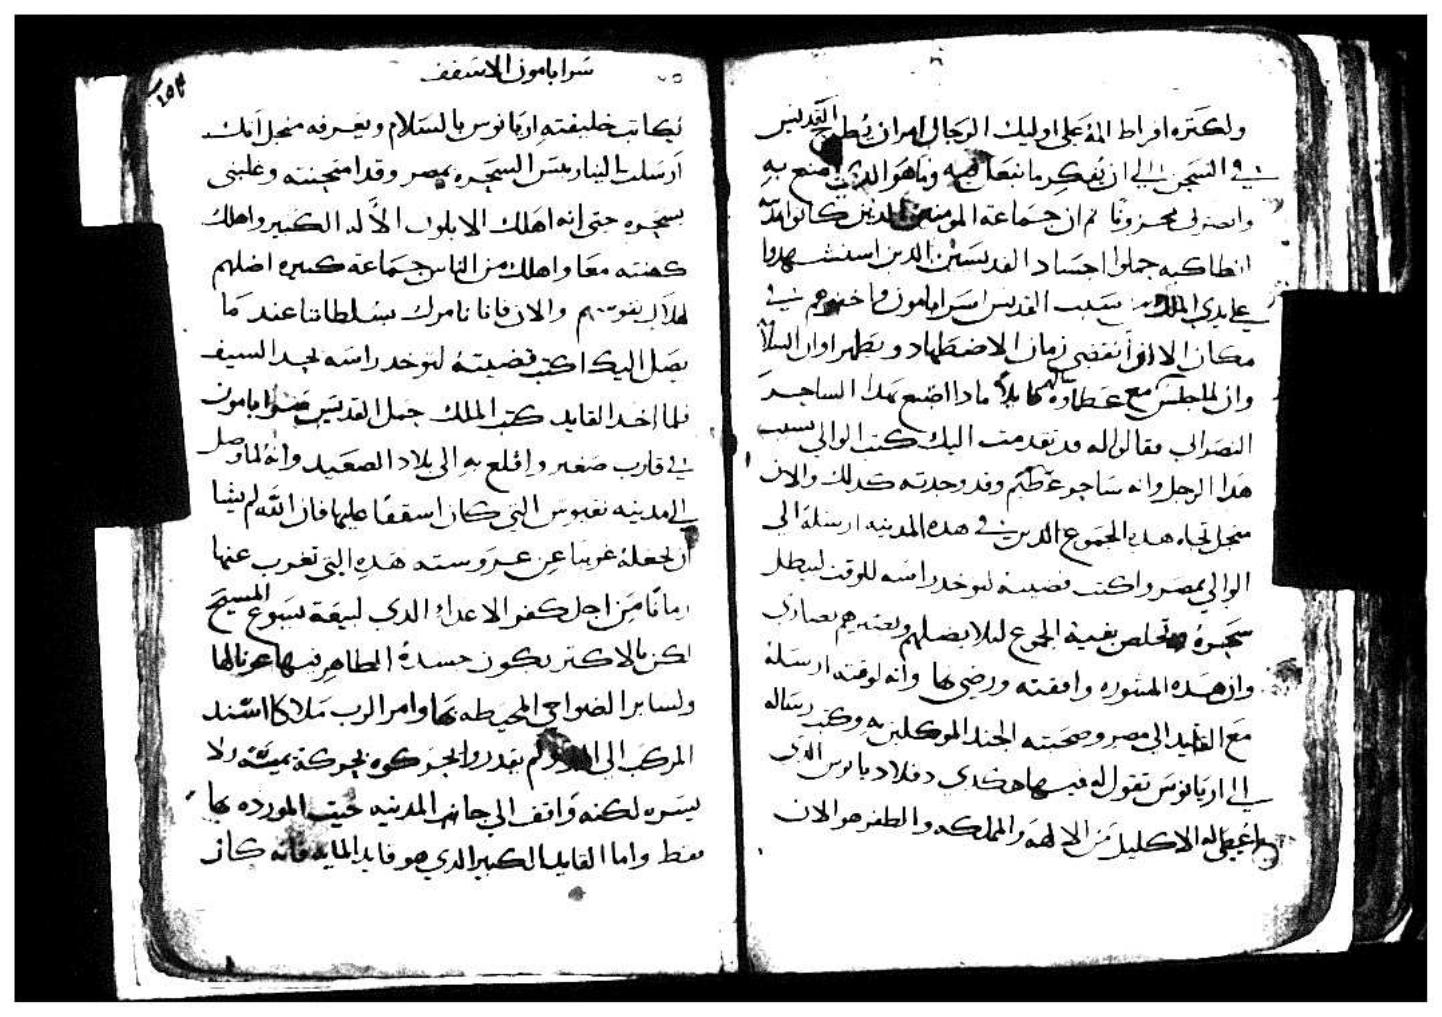 ولكتره افراط المه على اوليك الرجال امر ان يطرح القديس
في السجن الي ان يفكر ما نبعل فيه وما هو الدي يصنع به
وانصرف محزونا ثم ان جماعة المومنين الدين كانوا
انطاكيه حملوا اجساد القديسين الدين استشهدوا
علي يدي الملك بسبب القديس اسرابامون واخفوهم في
مكان الا ان انقضي زمان الاضطهاد ويظهر اوان السلام
وان لما جلس مع عظماوه قايلا مادا اصنع بهدا الساحر
النصراني فقالوا له قد تقدمت اليك كتب الوالي بسبب
هدا الرجل وانه ساحر عظيم وقد وجدته كدلك والان
منجل تجاه هده الجموع الدين في هده المدينه ارسله الي
الوالي بمصر واكتب قضيته لتوخد راسه للوقت ليبطل
سحره وتخلص بقية الجموع ليلا يضلهم ويصيرهم نصاري
وان هده المشوره وافقته ورضي بها وانه لوقته ارسله
مع القايد الي مصر وصحبته الجند الموكلين به وكتب رساله
الي اريانوس تقول له فيها هكدي دقلاديانوس الدي
اعطي له الاكليل من الالهه والمملكه والظفر هو الان
سرابامون الاسقف
يكاتب خليفته اريانوس بالسلام ويعرفه منجل انك
ارسلت الينا ريس السحره بمصر وقد امتحنته وغلبني
بسحره حتي انه اهلك الابلون الاله الكبير واهلك
كهنته معا واهلك من الناس جماعة كبيره اضلهم
لهلاك نفوسهم والان فانا نامرك بسلطاننا عند ما
يصل اليك اكتب قضيته لتوخد راسه بحد السيف
فلما اخد القايد كتب الملك حمل القديس سرابامون
في قارب صغير واقلع به الي بلاد الصعيد وانه لما وصل
الي مدينه نقيوس التي كان اسقفا عليها فان الله لم يشا
ان يجعله غريبا عن عروسته هده التي تغرب عنها
زمانا من اجل كفر الاعداء الدي لبيعة يسوع المسيح
لكن بالاكتر يكون جسده الطاهر فيها عونا لها
ولساير الضواحي المحيطه بها وامر الرب ملاكا اسند
المركب الي البر ولم يقدروا يحركوه بحركة يمنة ولا
يسره لكنه واقف الي جانب المدينه حيت المورده بها
فقط واما القايد الكبير الدي هو قايد المايه فانه كان